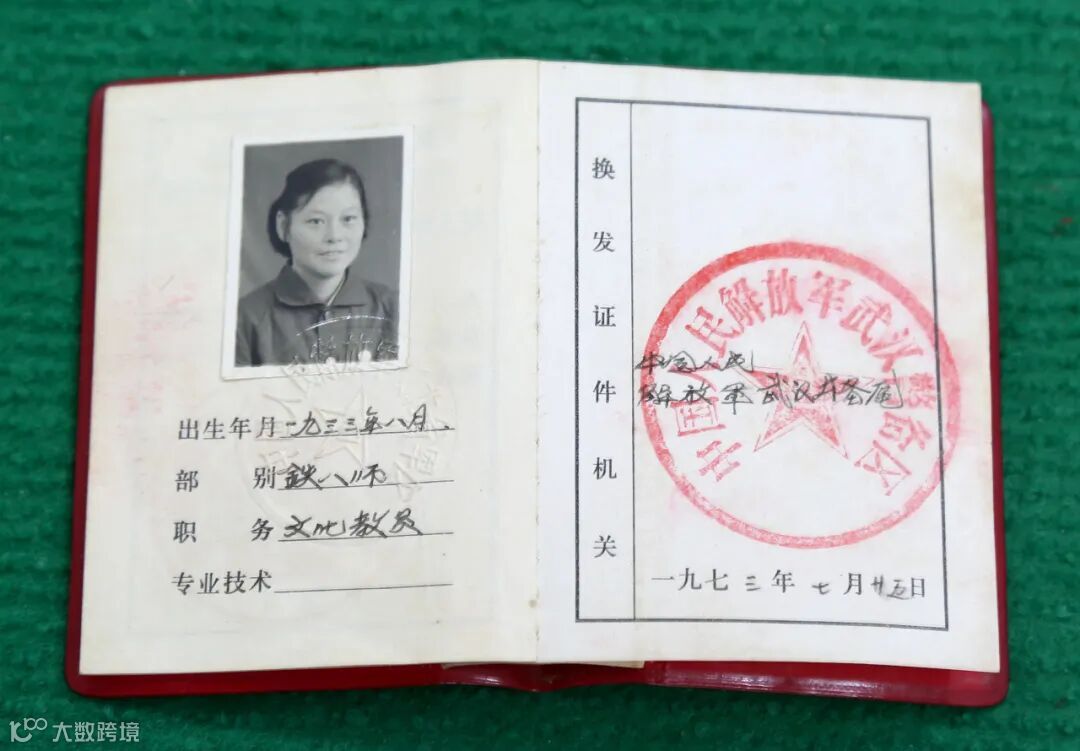 出生年月 一九三三年八月
部别 鉄八师
职务 文化教员
专业技术
换发证件机关
中国人民解放军武汉警备区
中国人民
解放军武汉警备区
一九七三年七月廿五日
大数跨境